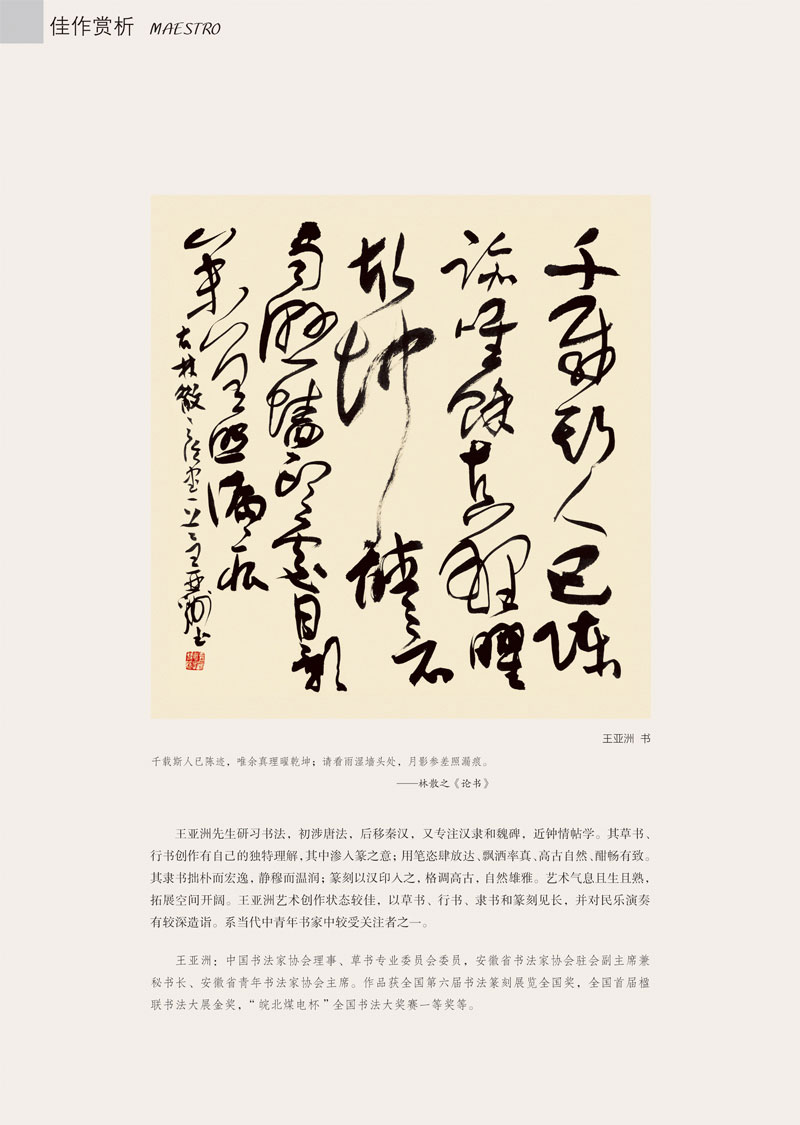 佳作赏析 MAESTRO
千載斯人已陳
跡唯餘真理曜
乾坤請看
雨濕墻頭處月影
參差照漏痕
王亚洲 书
千载斯人已陈迹，唯余真理曜乾坤；请看雨湿墙头处，月影参差照漏痕。
——林散之《论书》
王亚洲先生研习书法，初涉唐法，后移秦汉，又专注汉隶和魏碑，近钟情帖学。其草书、
行书创作有自己的独特理解，其中渗入篆之意；用笔恣肆放达、飘洒率真、高古自然、酣畅有致。
其隶书拙朴而宏逸，静穆而温润；篆刻以汉印入之，格调高古，自然雄雅。艺术气息且生且熟，
拓展空间开阔。王亚洲艺术创作状态较佳，以草书、行书、隶书和篆刻见长，并对民乐演奏
有较深造诣。系当代中青年书家中较受关注者之一。
王亚洲：中国书法家协会理事、草书专业委员会委员，安徽省书法家协会驻会副主席兼
秘书长、安徽省青年书法家协会主席。作品获全国第六届书法篆刻展览全国奖，全国首届楹
联书法大展金奖，“皖北煤电杯”全国书法大奖赛一等奖等。